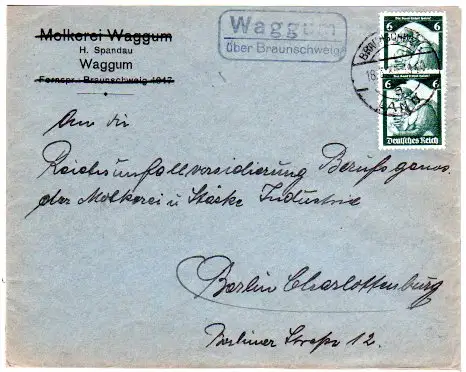 Molkerei Waggum
H. Spandau
Waggum
Fernspr.: Braunschweig 1947
Waggum
über Braunschweig
BRAUNSCHWEIG
LAND
6 6
6 6
Deutsches Reich
An die
Reichsunfallversicherung Berufsgenos.
der Molkerei u Stärke Industrie
Berlin Charlottenburg
Berliner Straße 12.